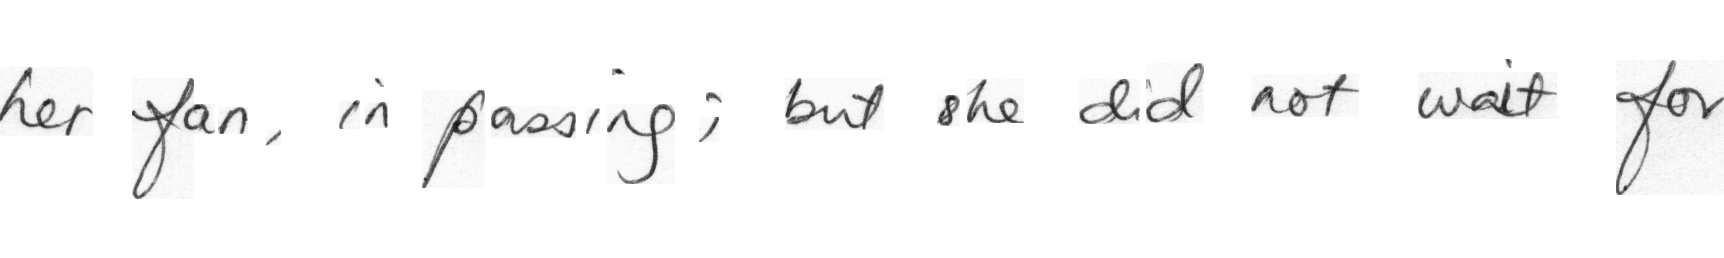 her fan, in passing; but she did not wait for